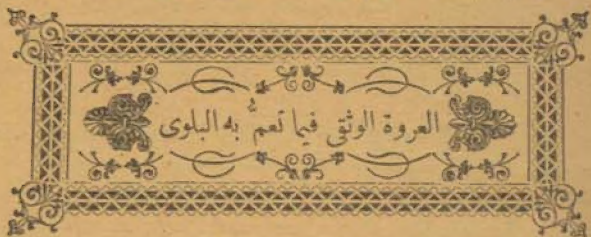 العروة الوثقى فيما تعمُّ به البلوى